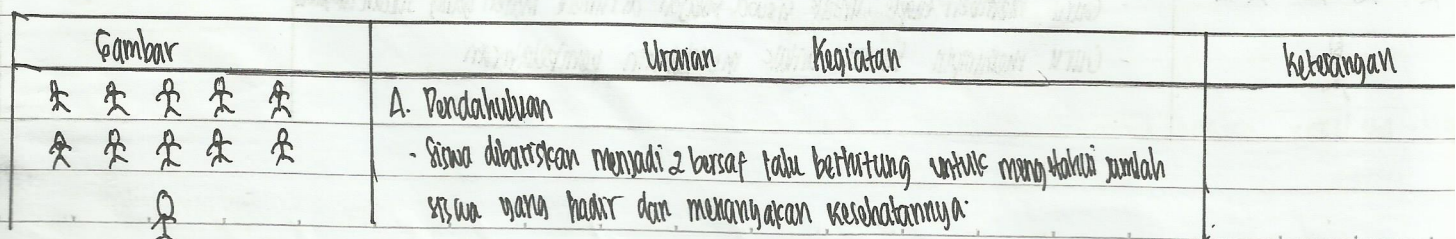 Gambar Uraian Kegiatan Keterangan
A. Pendahuluan
- Siswa dibariskan menjadi 2 bersaf lalu berhitung untuk mengetahui jumlah
siswa yang hadir dan menanyakan kesehatannya.